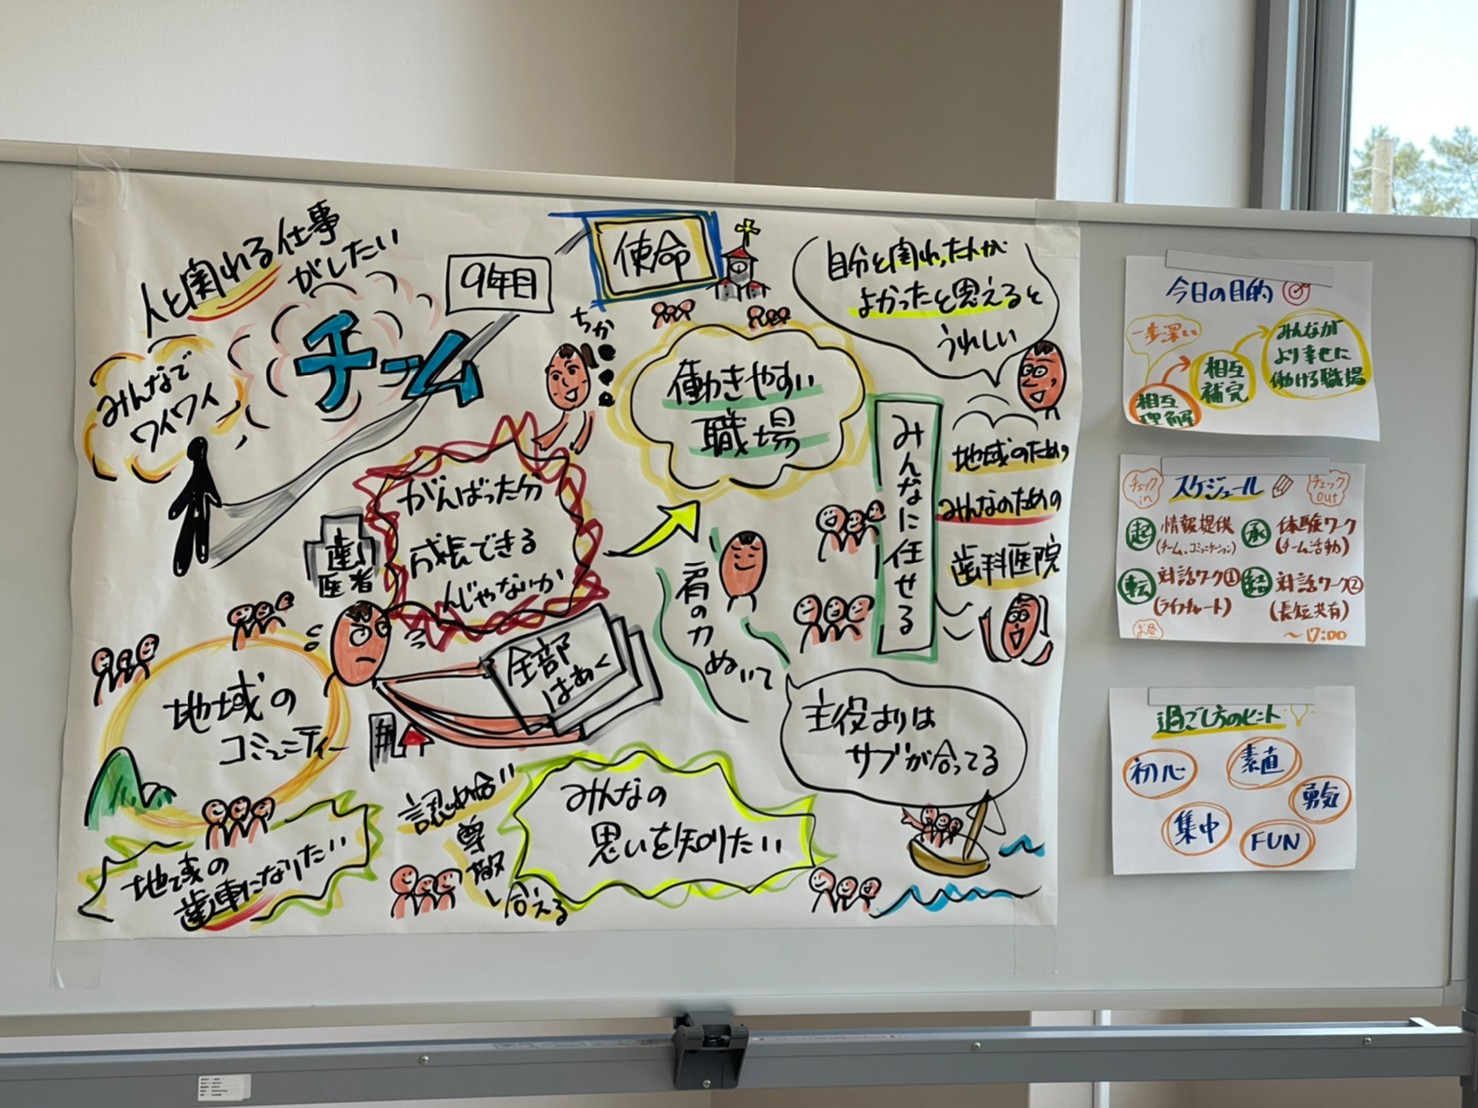 人と関われる仕事
がしたい
みんなで
ワイワイ
チーム
9年目
使命
ちか
自分と関わった人が
よかったと思えると
うれしい
働きやすい
職場
がんばった分
成長できる
んじゃないか
歯
医者
全部
はあく
肩の力
ぬいて
みんなに任せる
地域のため
みんなのための
歯科医院
主役よりは
サブが合ってる
地域の
コミュニティー
地域の
歯車になりたい
認め合い
尊敬し合える
みんなの
思いを知りたい
今日の目的
一歩深い
相互
理解
相互
補完
みんなが
より幸せに
働ける職場
チェック
in
スケジュール
チェック
out
起 情報提供
(チーム、コミュニケーション)
承 体験ワーク
(チーム活動)
転 対話ワーク①
(ライフチャート)
お昼
結 対話ワーク②
(長短共有)
～17:00
過ごし方のヒント
初心
素直
勇気
集中
FUN